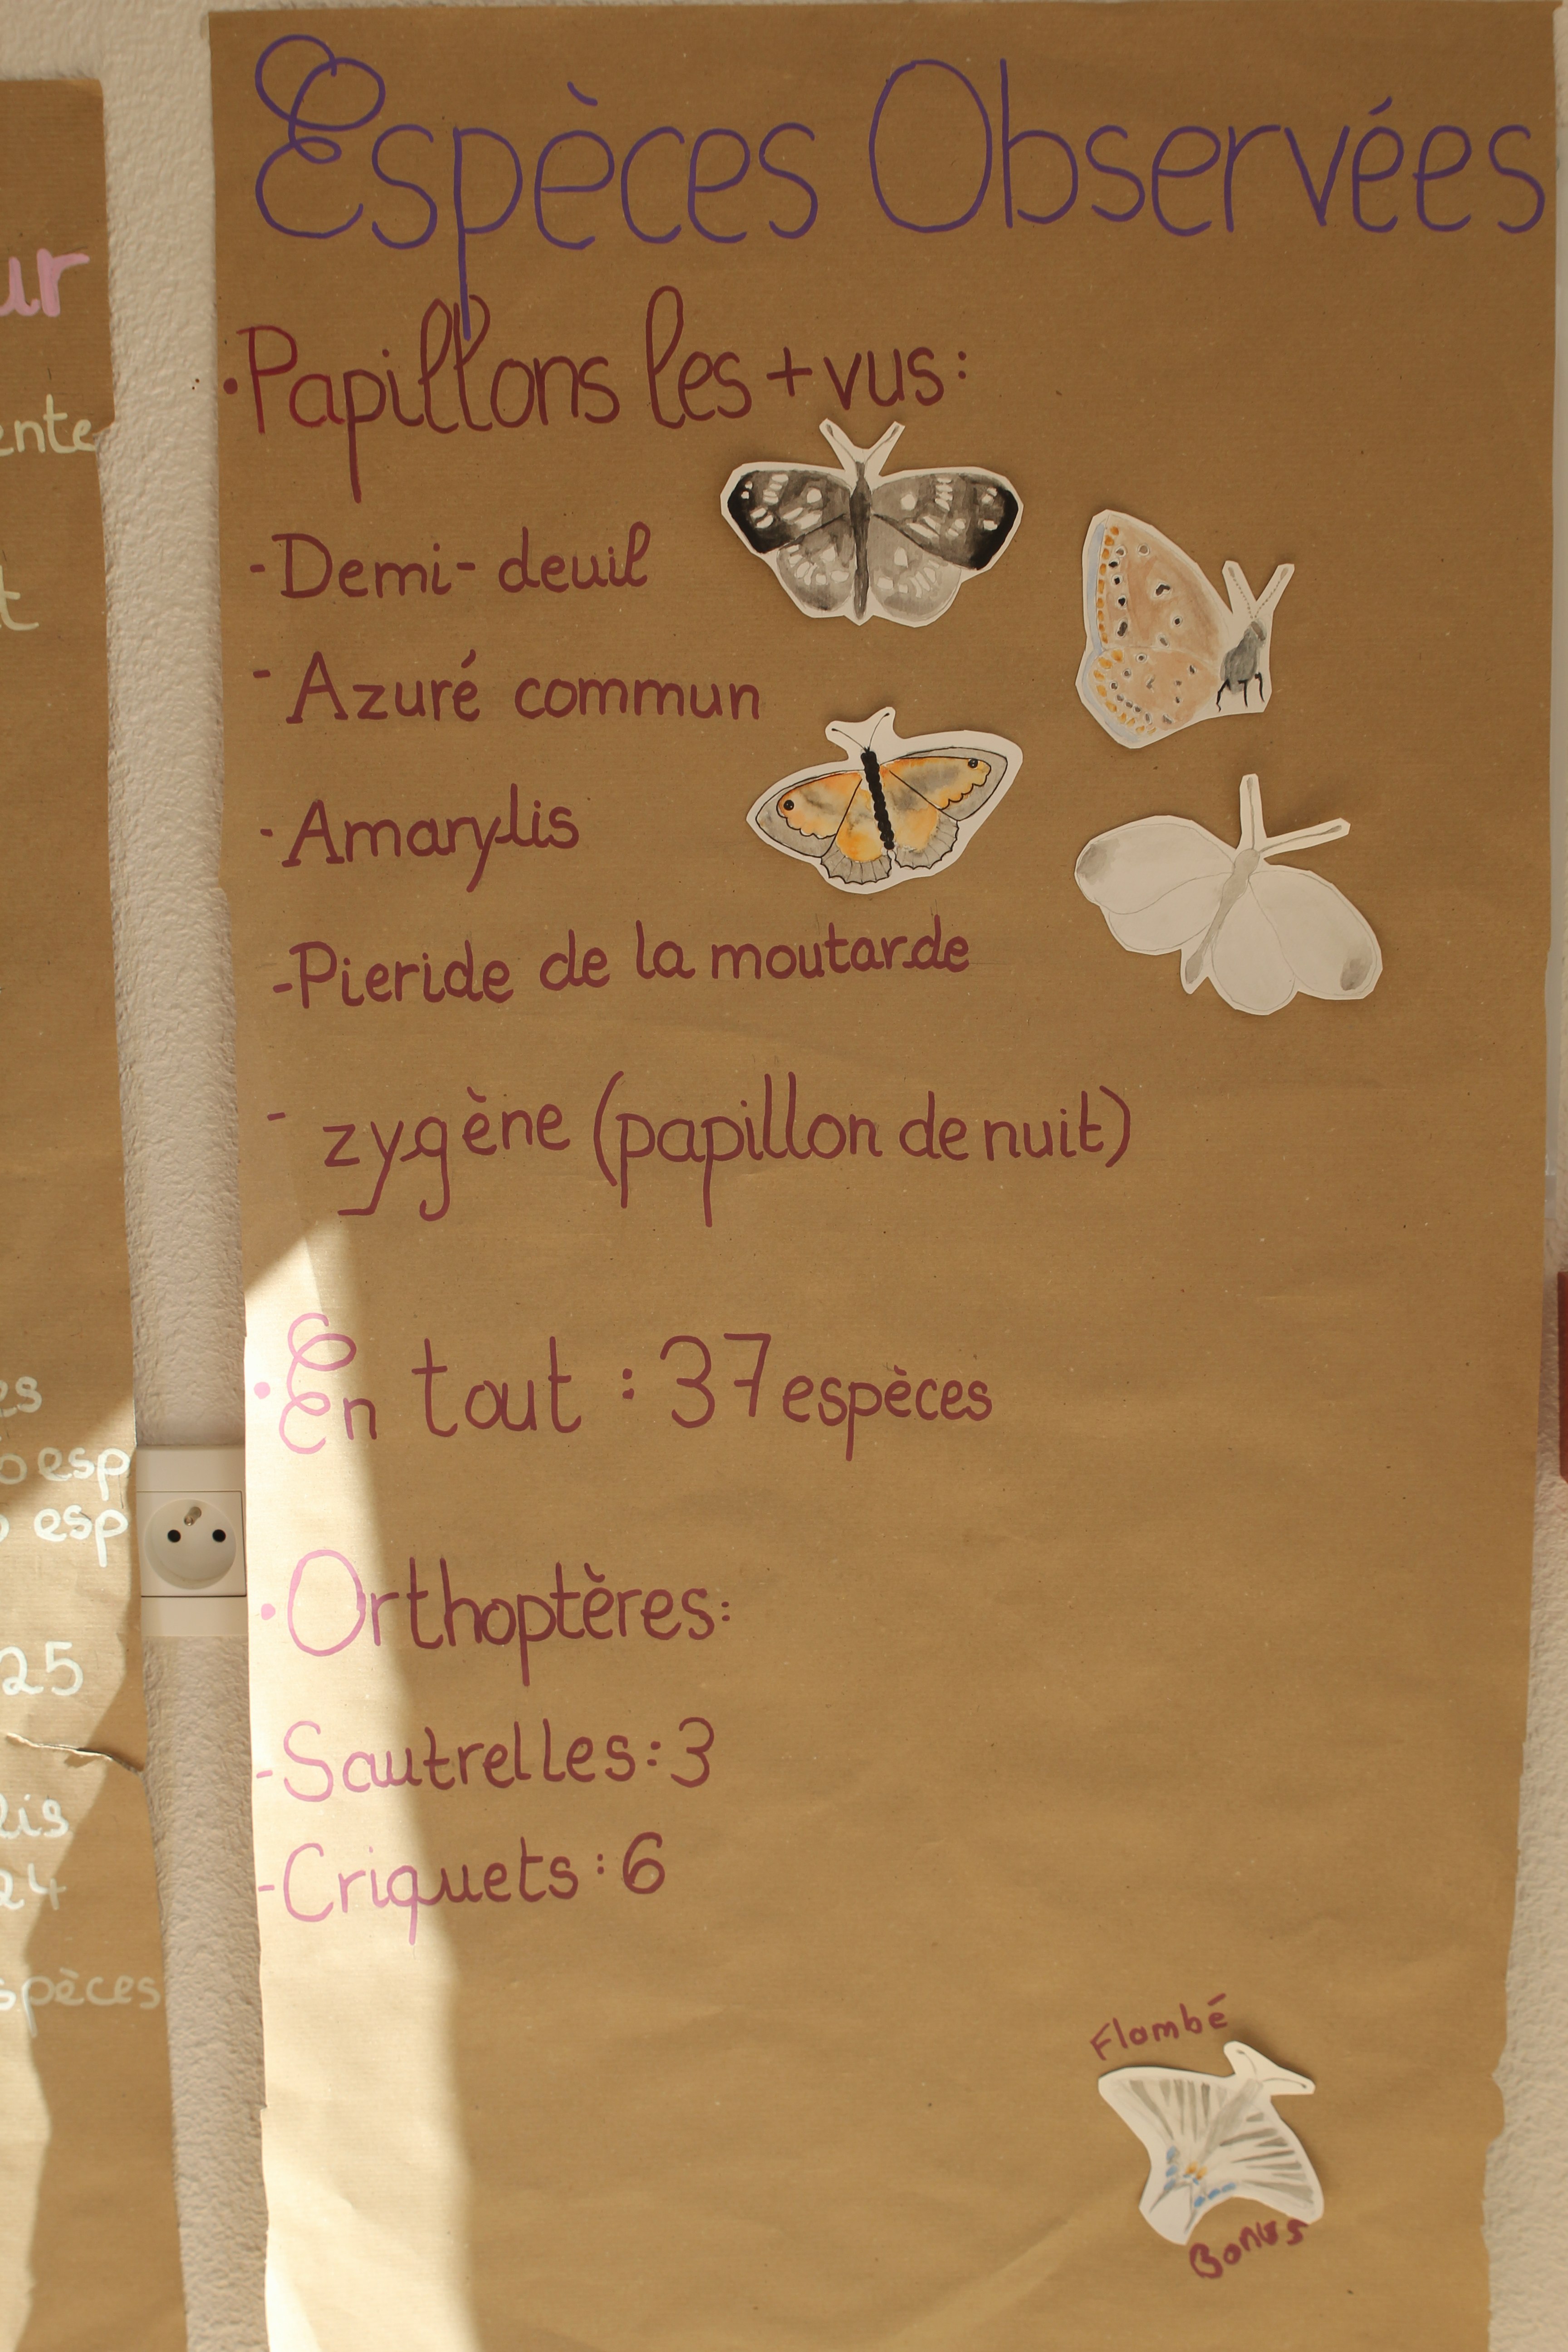 Espèces Observées
• Papillons les + vus :
- Demi-deuil
- Azuré commun
- Amarylis
- Pieride de la moutarde
- zygène (papillon de nuit)
• En tout : 37 espèces
• Orthoptères :
- Sautrelles : 3
- Criquets : 6
Flambé
Bonus
ur
ente
t
es
esp
esp
25
lis
24
spèces